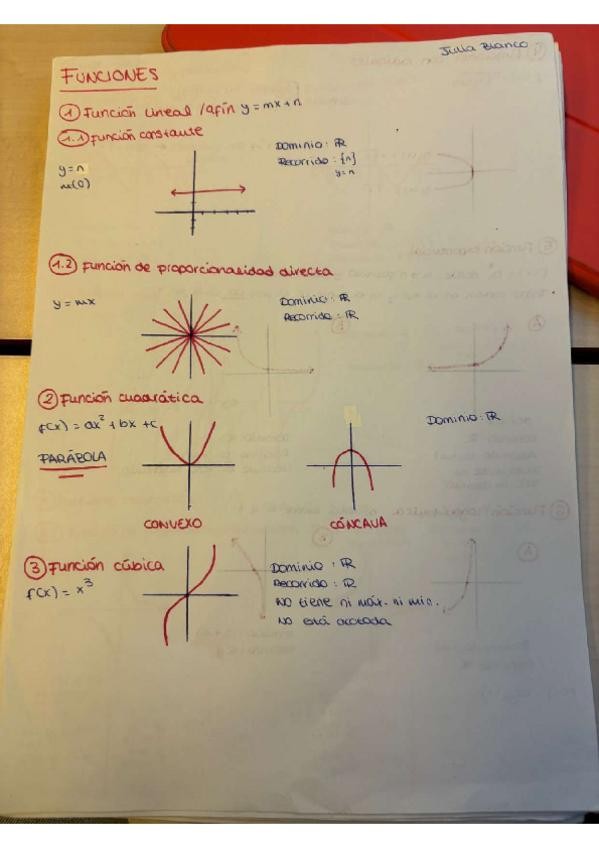 Julia Blanco
FUNCIONES
1 Función lineal /afín y = mx + n
1.1 Función constante
y = n
m(0)
Dominio: ℝ
Recorrido: {n}
y = n
1.2 Función de proporcionalidad directa
y = mx
Dominio: ℝ
Recorrido: ℝ
2 Función cuadrática
f(x) = ax² + bx + c
PARÁBOLA
Dominio: ℝ
CONVEXO
CÓNCAVA
3 Función cúbica
f(x) = x³
Dominio: ℝ
Recorrido: ℝ
No tiene ni máx. ni mín.
No está acotada